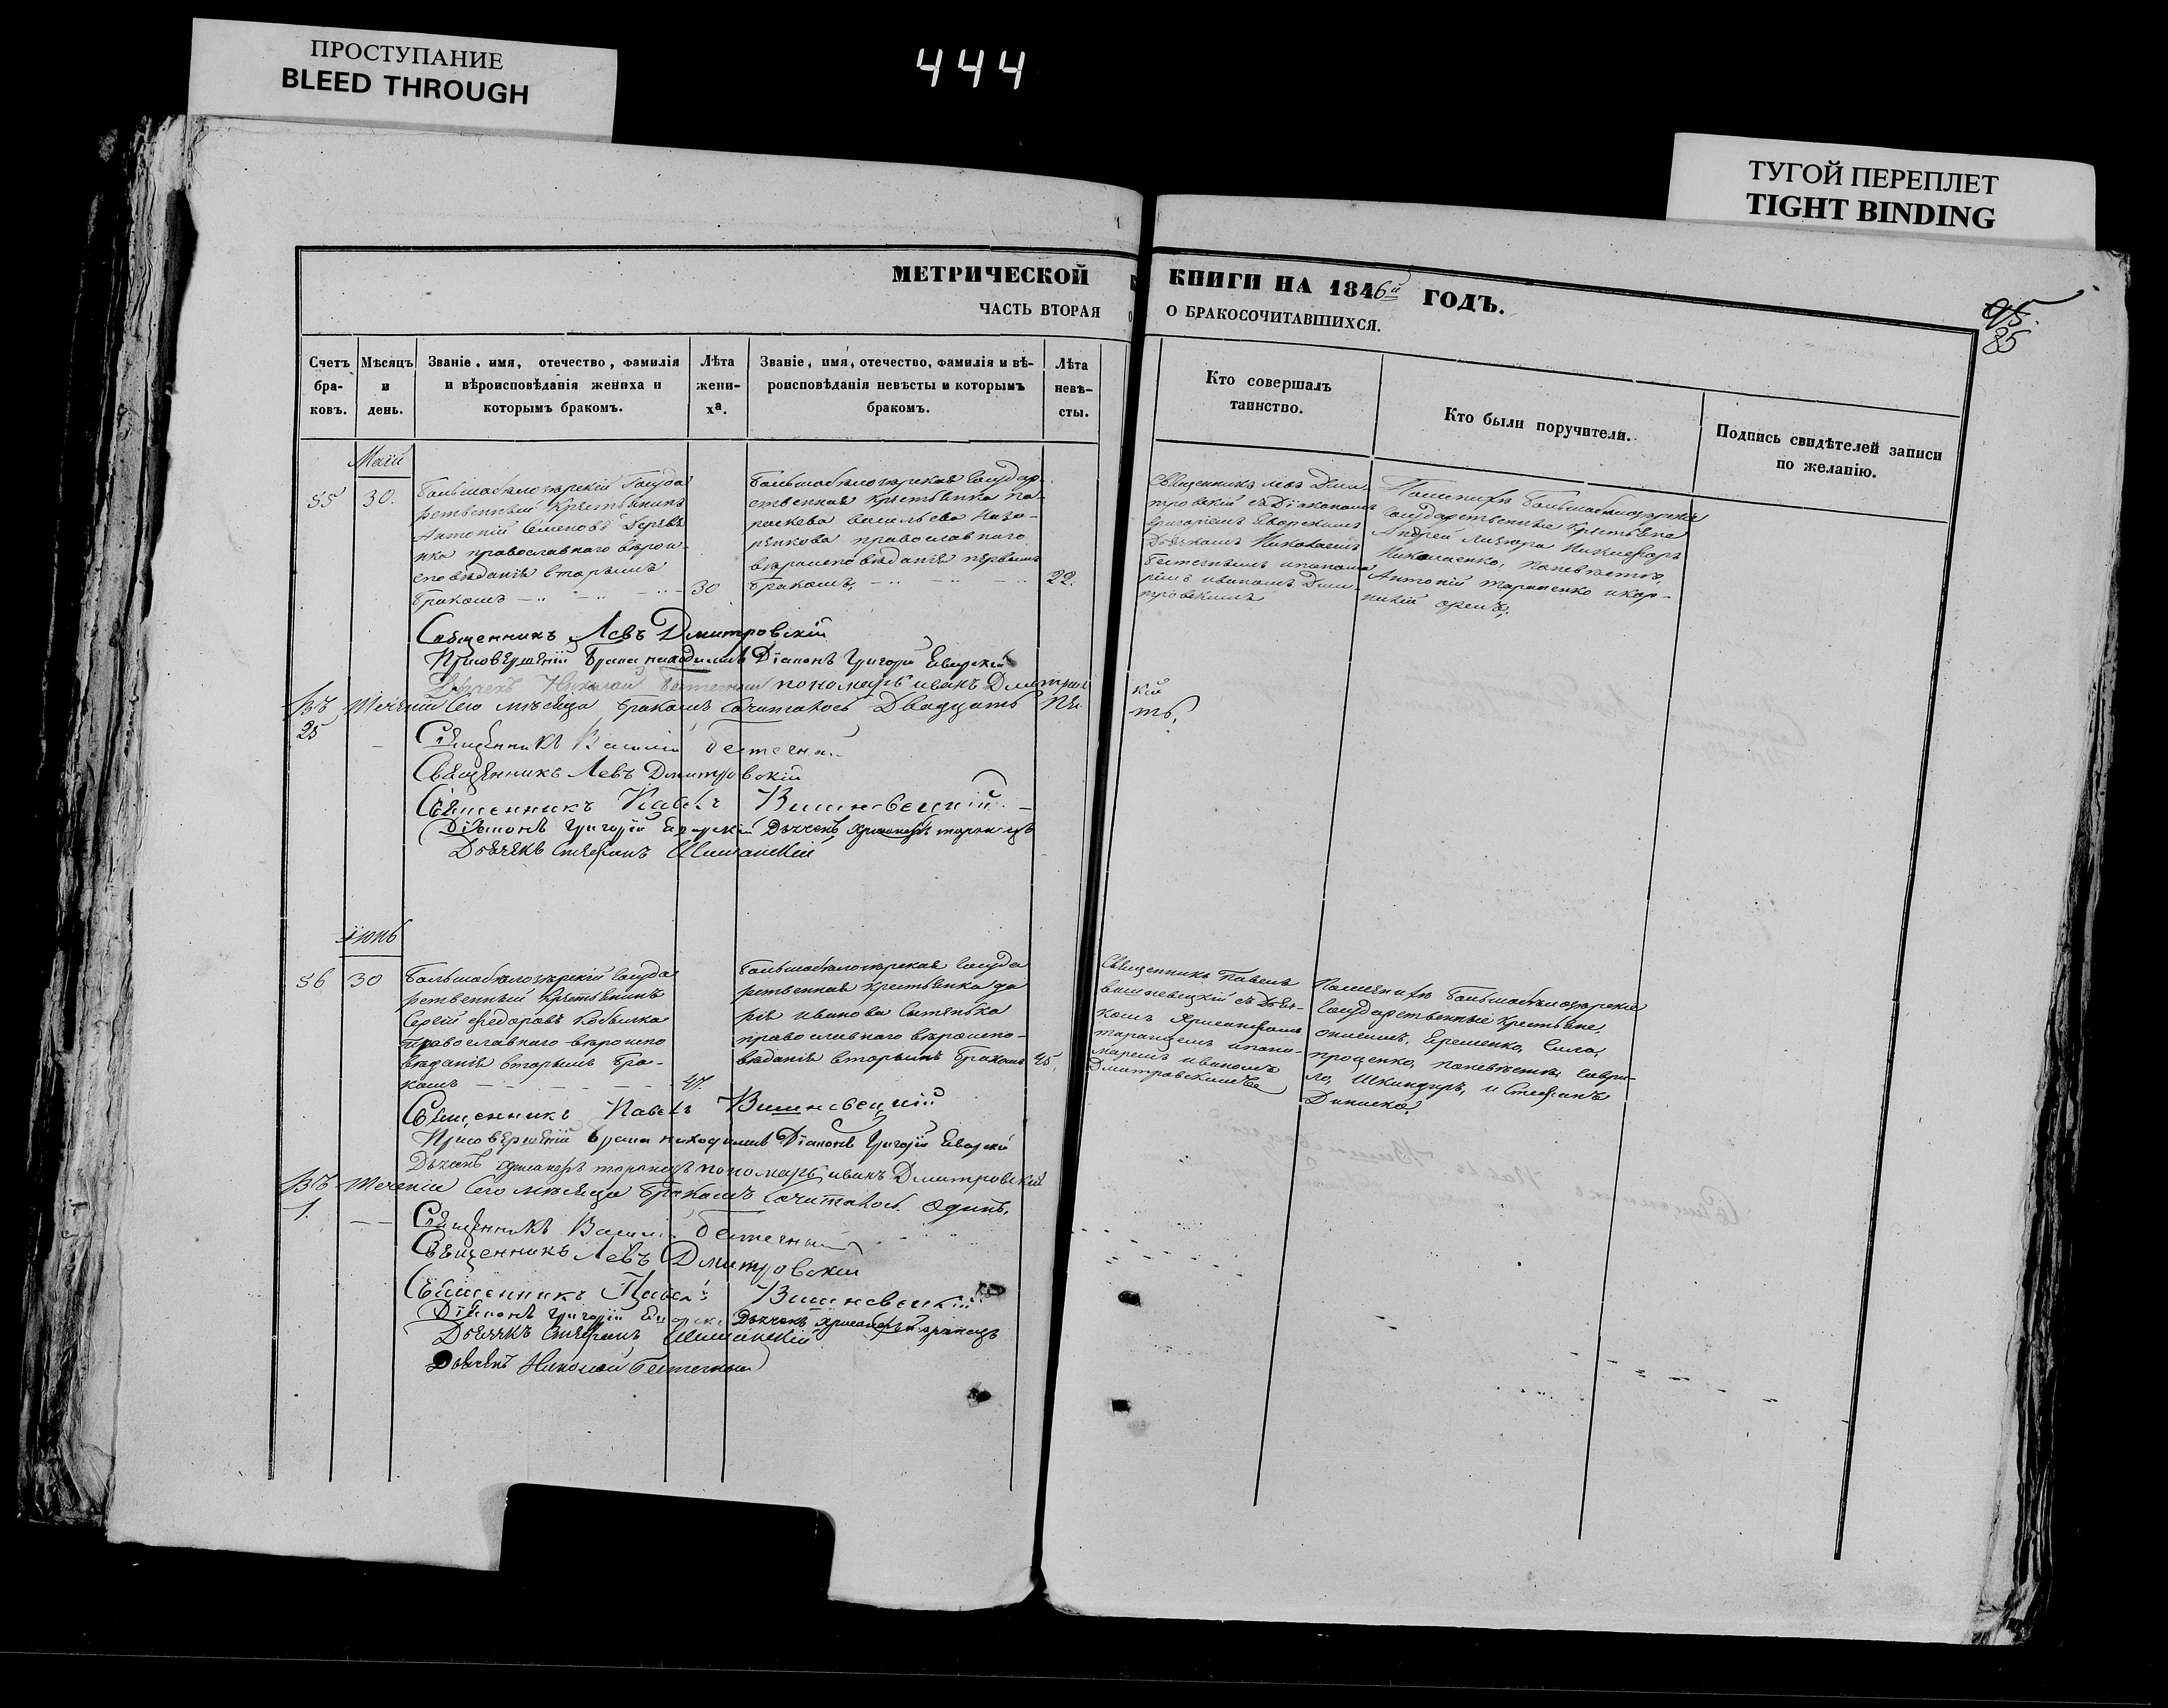 ПРОСТУПАНИЕ
BLEED THROUGH
444
ТУГОЙ ПЕРЕПЛЕТ
TIGHT BINDING
МЕТРИЧЕСКОЙ КНИГИ НА 1846й ГОДЪ.
ЧАСТЬ ВТОРАЯ О БРАКОСОЧИТАВШИХСЯ.
95.
85
Счетъ
бра-
ковъ.
Мѣсяцъ
и
день.
Званіе, имя, отечество, фамилія
и вѣроисповѣданія жениха и
которымъ бракомъ.
Лѣта
жени-
ха.
Званіе, имя, отечество, фамилія и вѣ-
роисповѣданія невѣсты и которымъ
бракомъ.
Лѣта
невѣ-
сты.
Кто совершалъ
таинство.
Кто были поручители.
Подпись свидѣтелей записи
по желанію.
Маій
55
30.
Большобѣлозерскій Госуда
рственный Крестьянинъ
Антоній Семеновъ
православнаго вѣрои
сповѣданія вторымъ
бракомъ
30
Большобѣлозерская Государ
ственная крестьянка Па
раскева Васильева Наза
ренкова православнаго
вѣроисповѣданія первымъ
бракомъ,
22.
Священникъ Левъ Дми
тровскій съ Діакономъ
Григоріемъ Яворскимъ
Дьячкомъ Николаемъ
Бестечнымъ и понома
ремъ Иваномъ Дми
тровскимъ
По женихѣ Большобѣлозерскіе
Государственные Крестьяне
Андрей Никифоръ
Николаенко, по невѣстѣ,
Антоній Тараненко и Кор-
нилій Орелъ,
Священникъ Левъ Дмитровскій
При совершеніи брака находились Діаконъ Григорій Яворскій
Дьячекъ Николай Бестечный пономарь Иванъ Дмитровскій
Въ течени сего мѣсяца бракомъ сочиталось Двадцать пять,
25
Священникъ Василій Бестечный
Священникъ Левъ Дмитровскій
Священникъ Павелъ Вишневецкій
Діаконъ Григорій Яворскій Дьячекъ Хрисанфъ Таранецъ
Дьячекъ Стефанъ Шиманскій
Іюнь
56
30
Большобѣлозерскій Госуда
рственный Крестьянинъ
Сергій Федоровъ Кобылка
православнаго вѣроиспо
вѣданія вторымъ бра-
комъ
47.
Большобѣлозерская Госуда
рственная крестьянка Да
рія Иванова
православнаго вѣроиспо-
вѣданія вторымъ бракомъ
45,
Священникъ Павелъ
Вишневецкій съ Дьяч-
комъ Хрисанфомъ
Таранцемъ и поно-
маремъ Иваномъ
Дмитровскимъ
По женихѣ Большобѣлозерскіе
Государственные Крестьяне,
Еременко, Сила,
Проценко, по невѣстѣ, Гаври-
ло, Шкандыръ, и Стефанъ
Священникъ Павелъ Вишневецкій
При совершеніи брака находились Діаконъ Григорій Яворскій
Дьячекъ Хрисанфъ Таранецъ пономарь Иванъ Дмитровскій
Въ течени сего мѣсяца бракомъ сочиталось одинъ,
1.
Священникъ Василій Бестечный
Священникъ Левъ Дмитровскій
Священникъ Павелъ Вишневецкій
Діаконъ Григорій Яворскій Дьячекъ Хрисанфъ Таранецъ
Дьячекъ Стефанъ Шиманскій
Дьячекъ Николай Бестечный